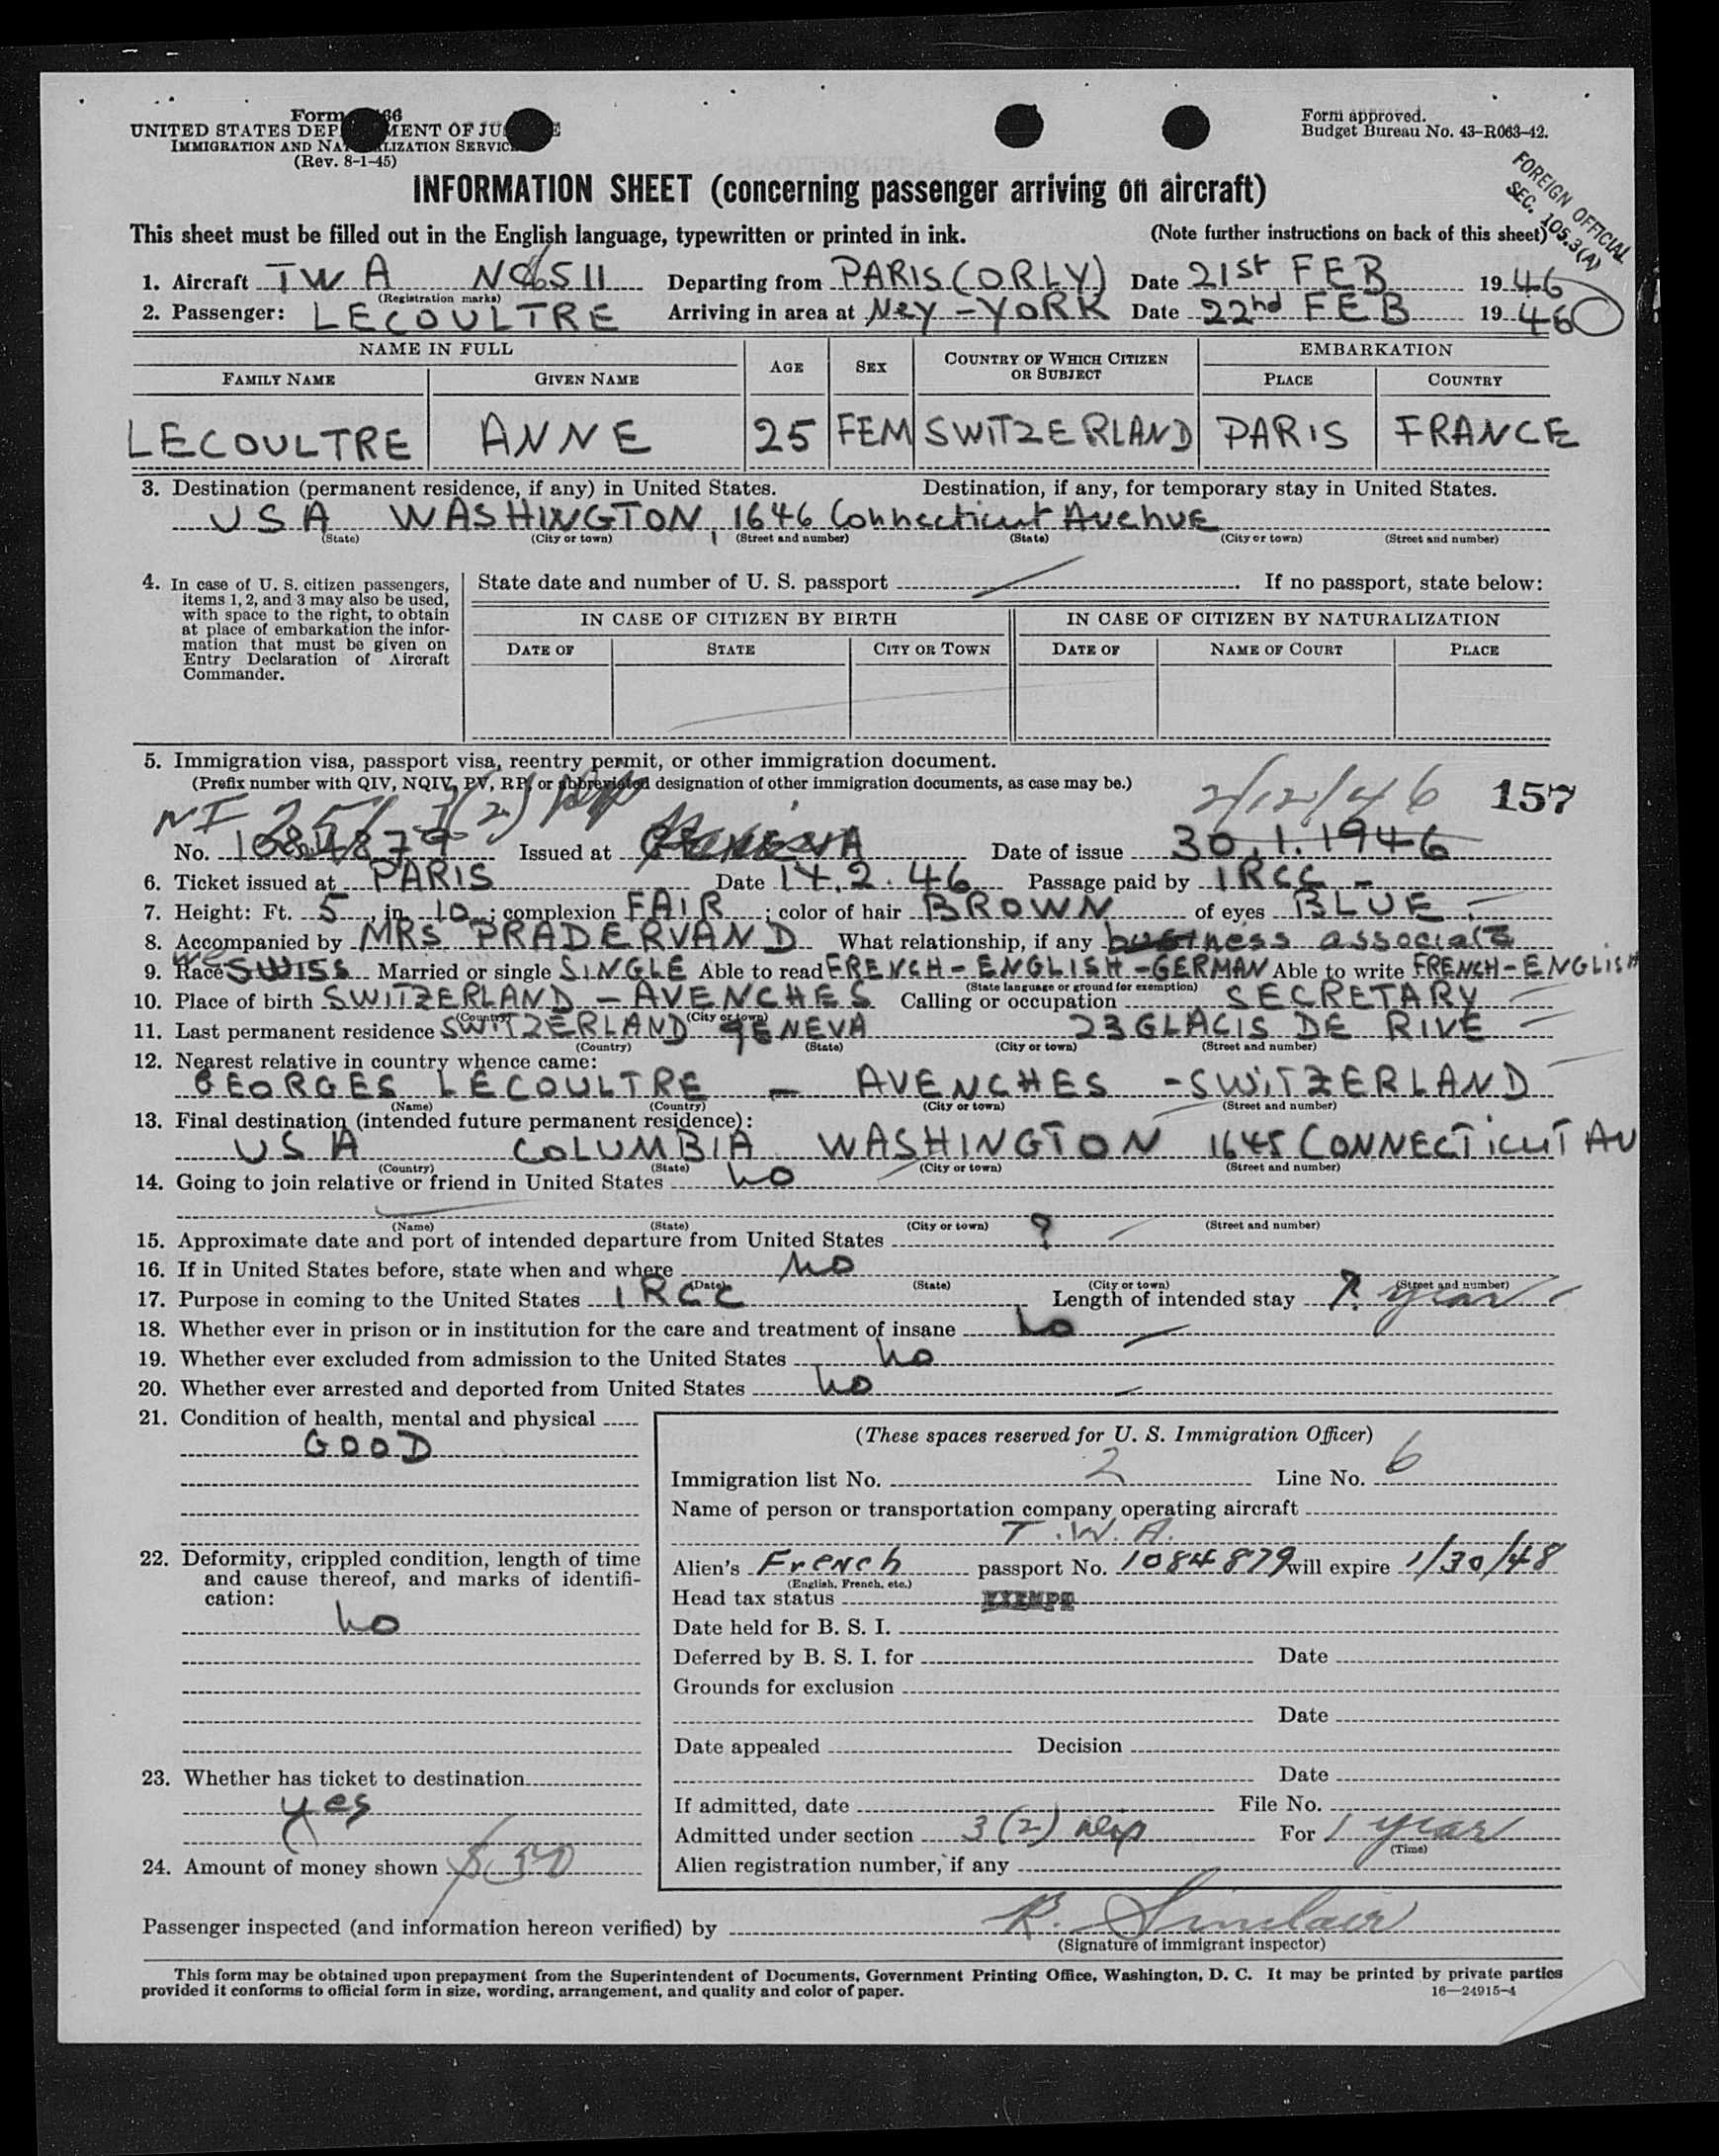 Form 66
UNITED STATES DEP MENT OF JU E
IMMIGRATION AND NA LIZATION SERVIC
(Rev. 8-1-45)
Form approved.
Budget Bureau No. 43-R063-42.
FOREIGN OFFICIAL
SEC. 105.3(A)
INFORMATION SHEET (concerning passenger arriving on aircraft)
This sheet must be filled out in the English language, typewritten or printed in ink. (Note further instructions on back of this sheet)
1. Aircraft TWA NC6511 Departing from PARIS (ORLY) Date 21st FEB 1946
(Registration marks)
2. Passenger: LECOULTRE Arriving in area at Ney-YORK Date 22nd FEB 1946
NAME IN FULL AGE SEX COUNTRY OF WHICH CITIZEN OR SUBJECT EMBARKATION
FAMILY NAME GIVEN NAME PLACE COUNTRY
LECOULTRE ANNE 25 FEM SWITZERLAND PARIS FRANCE
3. Destination (permanent residence, if any) in United States. Destination, if any, for temporary stay in United States.
USA WASHINGTON, 1646 Connecticut AvenuE
(State) (City or town) (Street and number) (State) (City or town) (Street and number)
4. In case of U. S. citizen passengers, items 1, 2, and 3 may also be used, with space to the right, to obtain at place of embarkation the information that must be given on Entry Declaration of Aircraft Commander.
State date and number of U. S. passport If no passport, state below:
IN CASE OF CITIZEN BY BIRTH IN CASE OF CITIZEN BY NATURALIZATION
DATE OF STATE CITY OR TOWN DATE OF NAME OF COURT PLACE
5. Immigration visa, passport visa, reentry permit, or other immigration document.
(Prefix number with QIV, NQIV, PV, RP, or abbreviated designation of other immigration documents, as case may be.)
2/12/46 157
No. 1084879 Issued at GENEVA Date of issue 30.1.1946
6. Ticket issued at PARIS Date 14.2.46 Passage paid by IRCC -
7. Height: Ft. 5, in. 10; complexion FAIR; color of hair BROWN of eyes BLUE
8. Accompanied by MRS PRADERVAND What relationship, if any business associate
9. Race SWISS Married or single SINGLE Able to read FRENCH-ENGLISH-GERMAN Able to write FRENCH-ENGLISH
(State language or ground for exemption)
10. Place of birth SWITZERLAND - AVENCHES Calling or occupation SECRETARY
(Country) (City or town)
11. Last permanent residence SWITZERLAND GENEVA 23 GLACIS DE RIVE
(Country) (State) (City or town) (Street and number)
12. Nearest relative in country whence came:
GEORGES LECOULTRE - AVENCHES - SWITZERLAND
(Name) (Country) (City or town) (Street and number)
13. Final destination (intended future permanent residence):
USA COLUMBIA WASHINGTON 1645 CONNECTICUT AV
(Country) (State) (City or town) (Street and number)
14. Going to join relative or friend in United States no
(Name) (State) (City or town) (Street and number)
15. Approximate date and port of intended departure from United States ?
16. If in United States before, state when and where no
(Date) (State) (City or town) (Street and number)
17. Purpose in coming to the United States IRCC Length of intended stay ? year
18. Whether ever in prison or in institution for the care and treatment of insane no
19. Whether ever excluded from admission to the United States no
20. Whether ever arrested and deported from United States no
21. Condition of health, mental and physical
GOOD
22. Deformity, crippled condition, length of time and cause thereof, and marks of identification:
no
23. Whether has ticket to destination
yes
24. Amount of money shown $50
(These spaces reserved for U. S. Immigration Officer)
Immigration list No. 2 Line No. 6
Name of person or transportation company operating aircraft
T.W.A.
Alien's French passport No. 1084879 will expire 1/30/48
(English, French, etc.)
Head tax status EXEMPT
Date held for B. S. I.
Deferred by B. S. I. for Date
Grounds for exclusion
Date
Date appealed Decision
Date
If admitted, date File No.
Admitted under section 3(2) For 1 year
(Time)
Alien registration number, if any
Passenger inspected (and information hereon verified) by R. Sinclair
(Signature of immigrant inspector)
This form may be obtained upon prepayment from the Superintendent of Documents, Government Printing Office, Washington, D. C. It may be printed by private parties
provided it conforms to official form in size, wording, arrangement, and quality and color of paper. 16—24915-4